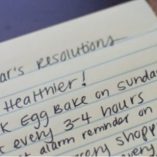 ar's resolutions
Healthier!
k Egg Bake on sunda
k every 3-4 hours
t alarm reminder on
very shopp
every